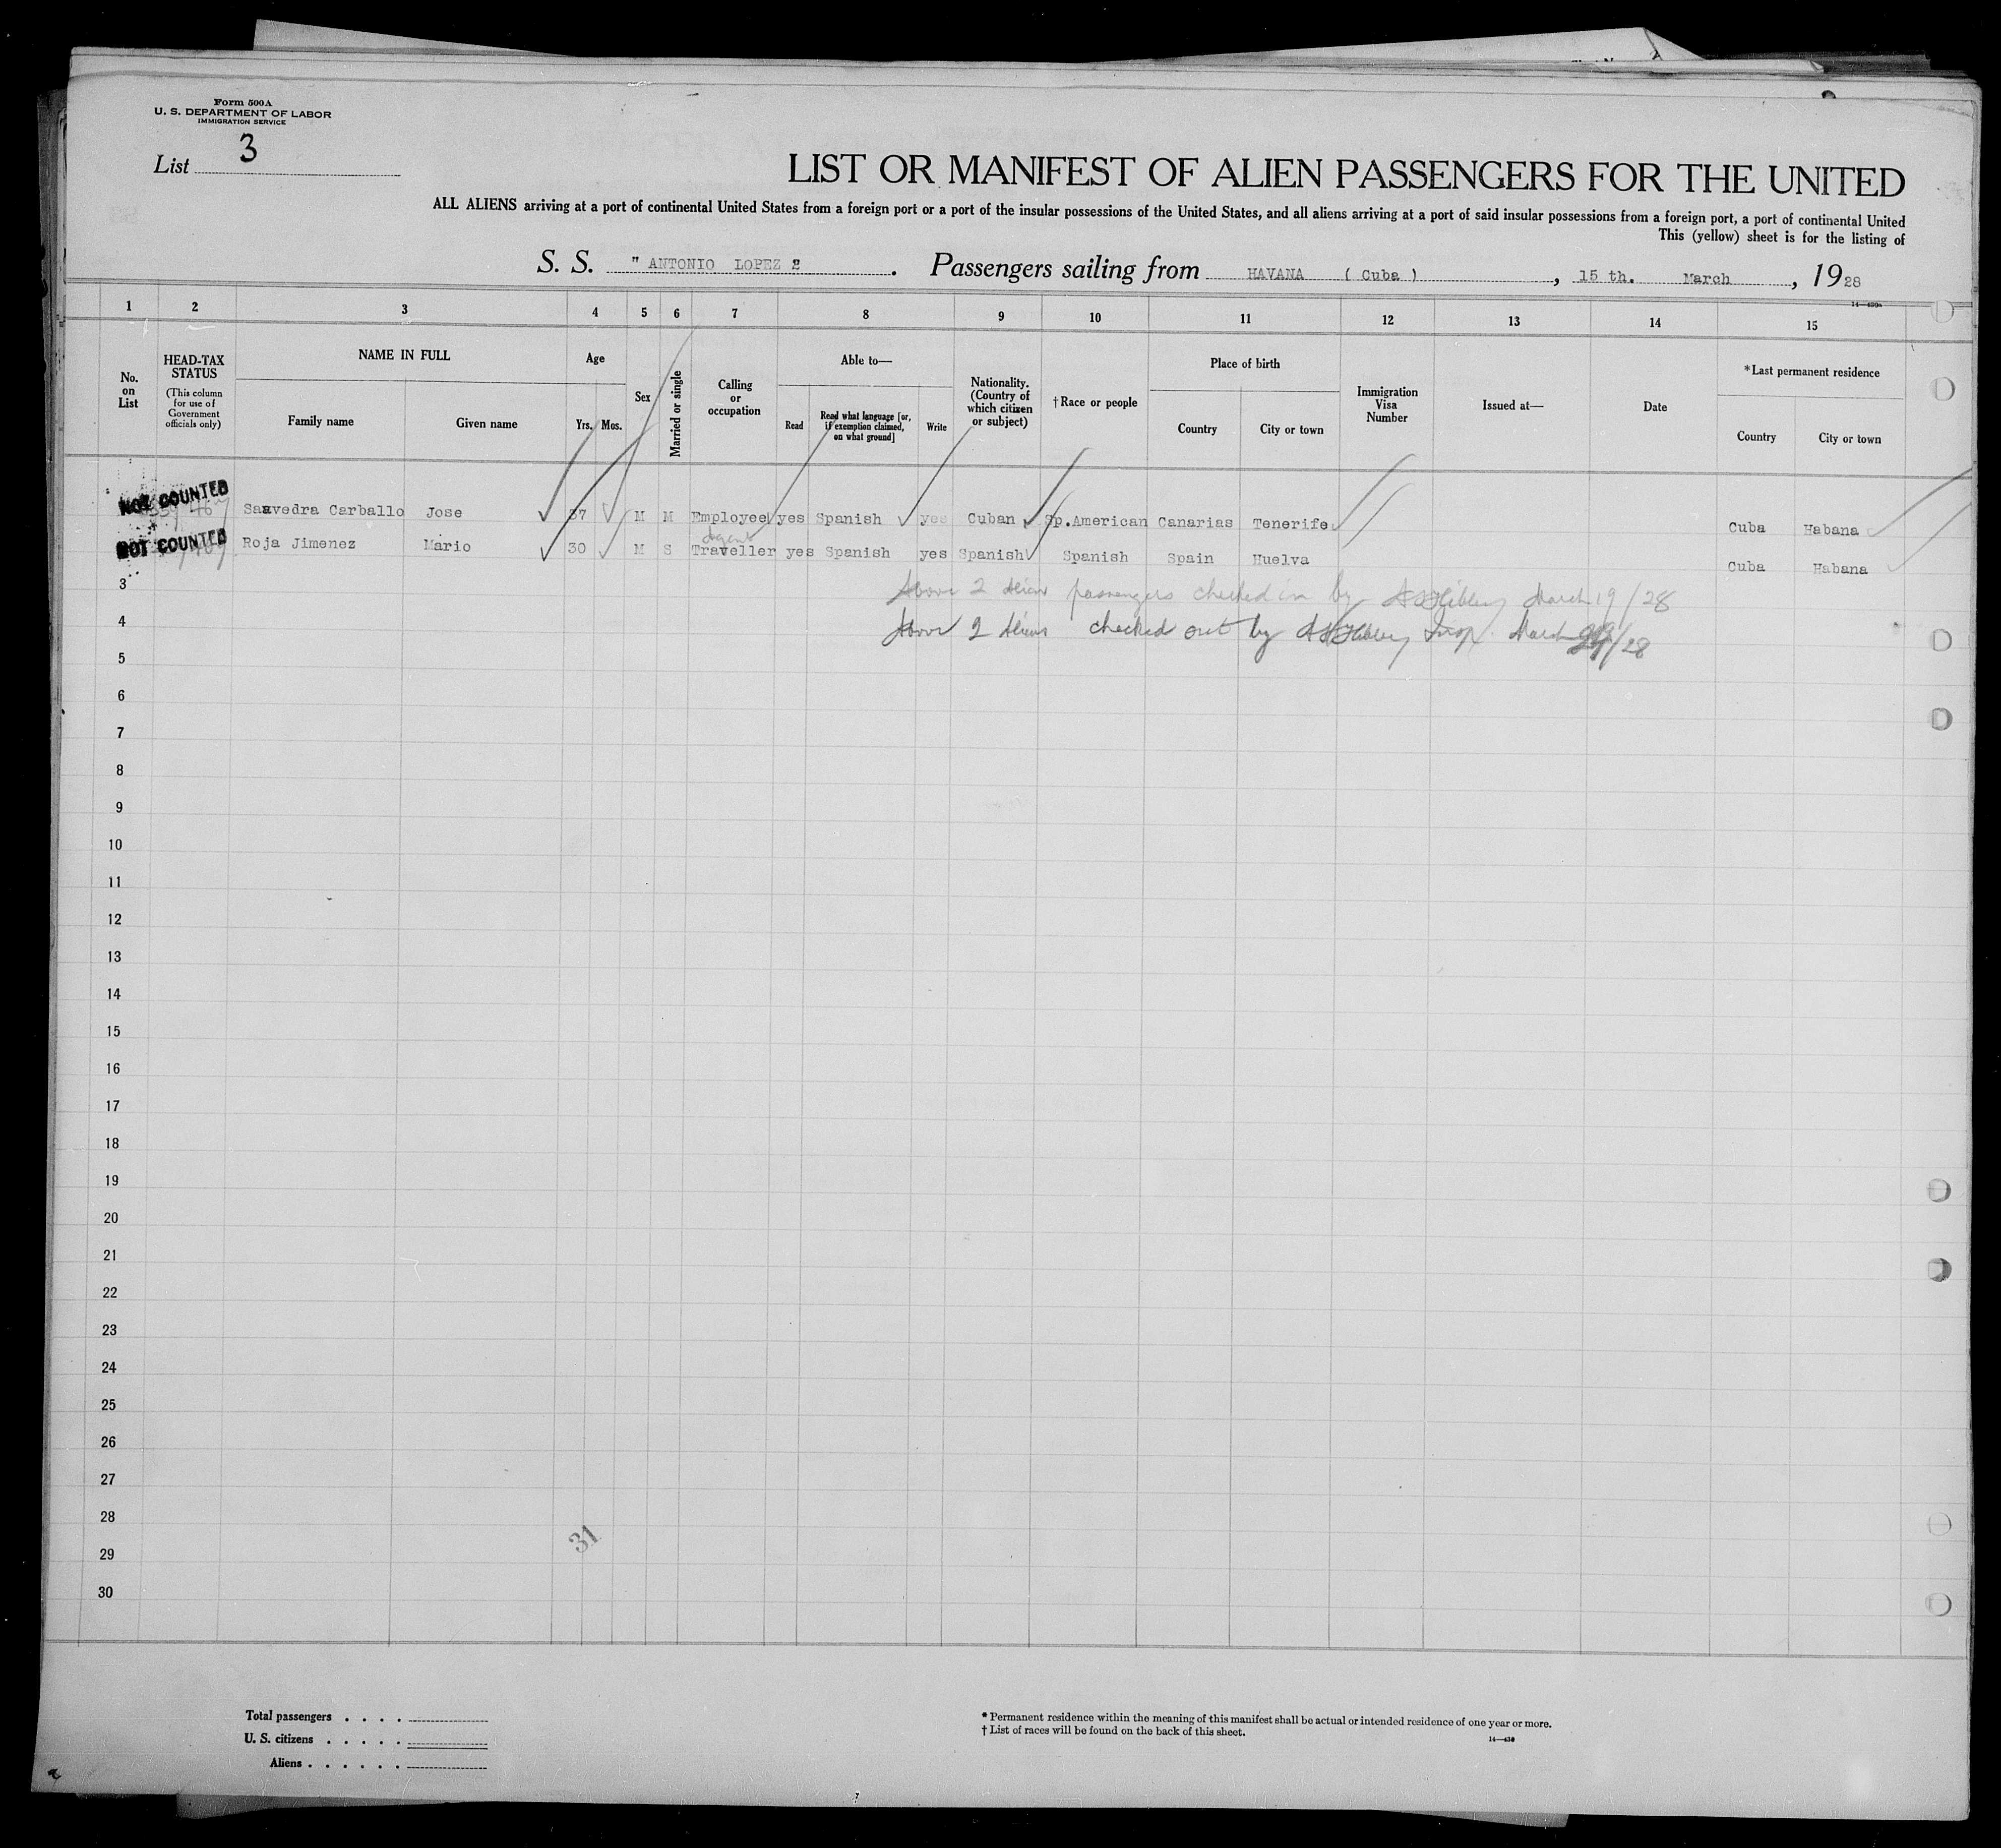 Form 500A
U. S. DEPARTMENT OF LABOR
IMMIGRATION SERVICE
List 3
LIST OR MANIFEST OF ALIEN PASSENGERS FOR THE UNITED
ALL ALIENS arriving at a port of continental United States from a foreign port or a port of the insular possessions of the United States, and all aliens arriving at a port of said insular possessions from a foreign port, a port of continental United
This (yellow) sheet is for the listing of
S. S. " ANTONIO LOPEZ 2 . Passengers sailing from HAVANA ( Cuba ) , 15 th. March , 1928
1 2 3 4 5 6 7 8 9 10 11 12 13 14 15
No. on List
HEAD-TAX STATUS
(This column for use of Government officials only)
NAME IN FULL
Family name Given name
Age
Yrs. Mos.
Sex
Married or single
Calling or occupation
Able to—
Read Read what language [or, if exemption claimed, on what ground] Write
Nationality. (Country of which citizen or subject)
†Race or people
Place of birth
Country City or town
Immigration Visa Number
Issued at—
Date
*Last permanent residence
Country City or town
NOT COUNTED Saavedra Carballo Jose 37 M M Employee yes Spanish yes Cuban Sp.American Canarias Tenerife Cuba Habana
Agent
NOT COUNTED Roja Jimenez Mario 30 M S Traveller yes Spanish yes Spanish Spanish Spain Huelva Cuba Habana
3 Above 2 Alien passengers checked in by March 19/28
4 Above 2 Aliens checked out by Insp. March /28
5
6
7
8
9
10
11
12
13
14
15
16
17
18
19
20
21
22
23
24
25
26
27
28
31
29
30
Total passengers . . . .
U. S. citizens . . . . .
Aliens . . . . . .
* Permanent residence within the meaning of this manifest shall be actual or intended residence of one year or more.
† List of races will be found on the back of this sheet.